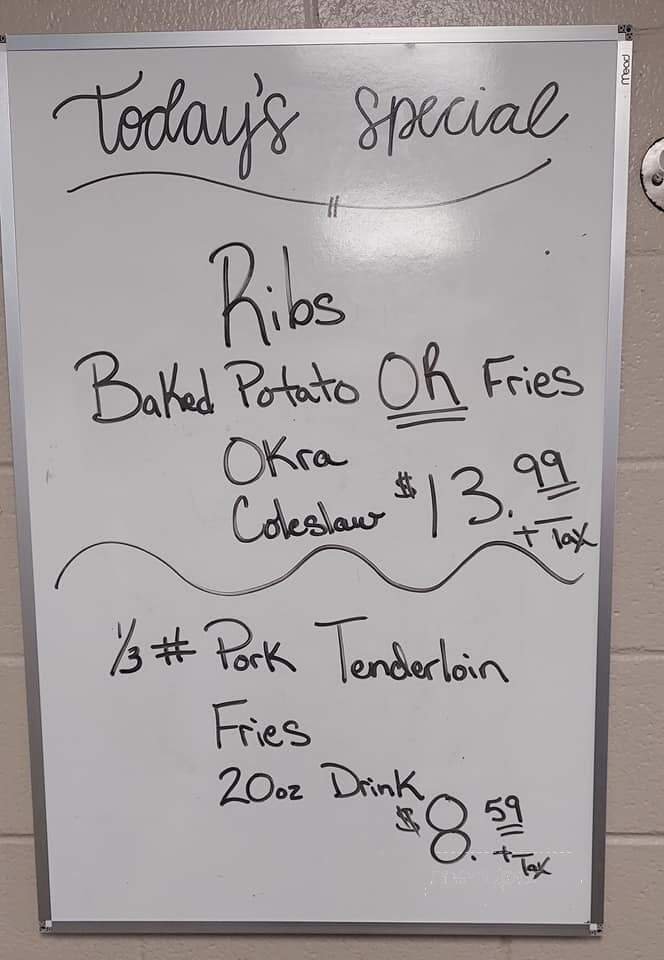 Mead
Today's special
Ribs
Baked Potato OR Fries
Okra
Coleslaw $13.99
+ Tax
1/3 # Pork Tenderloin
Fries
20oz Drink
$8.59
+ Tax